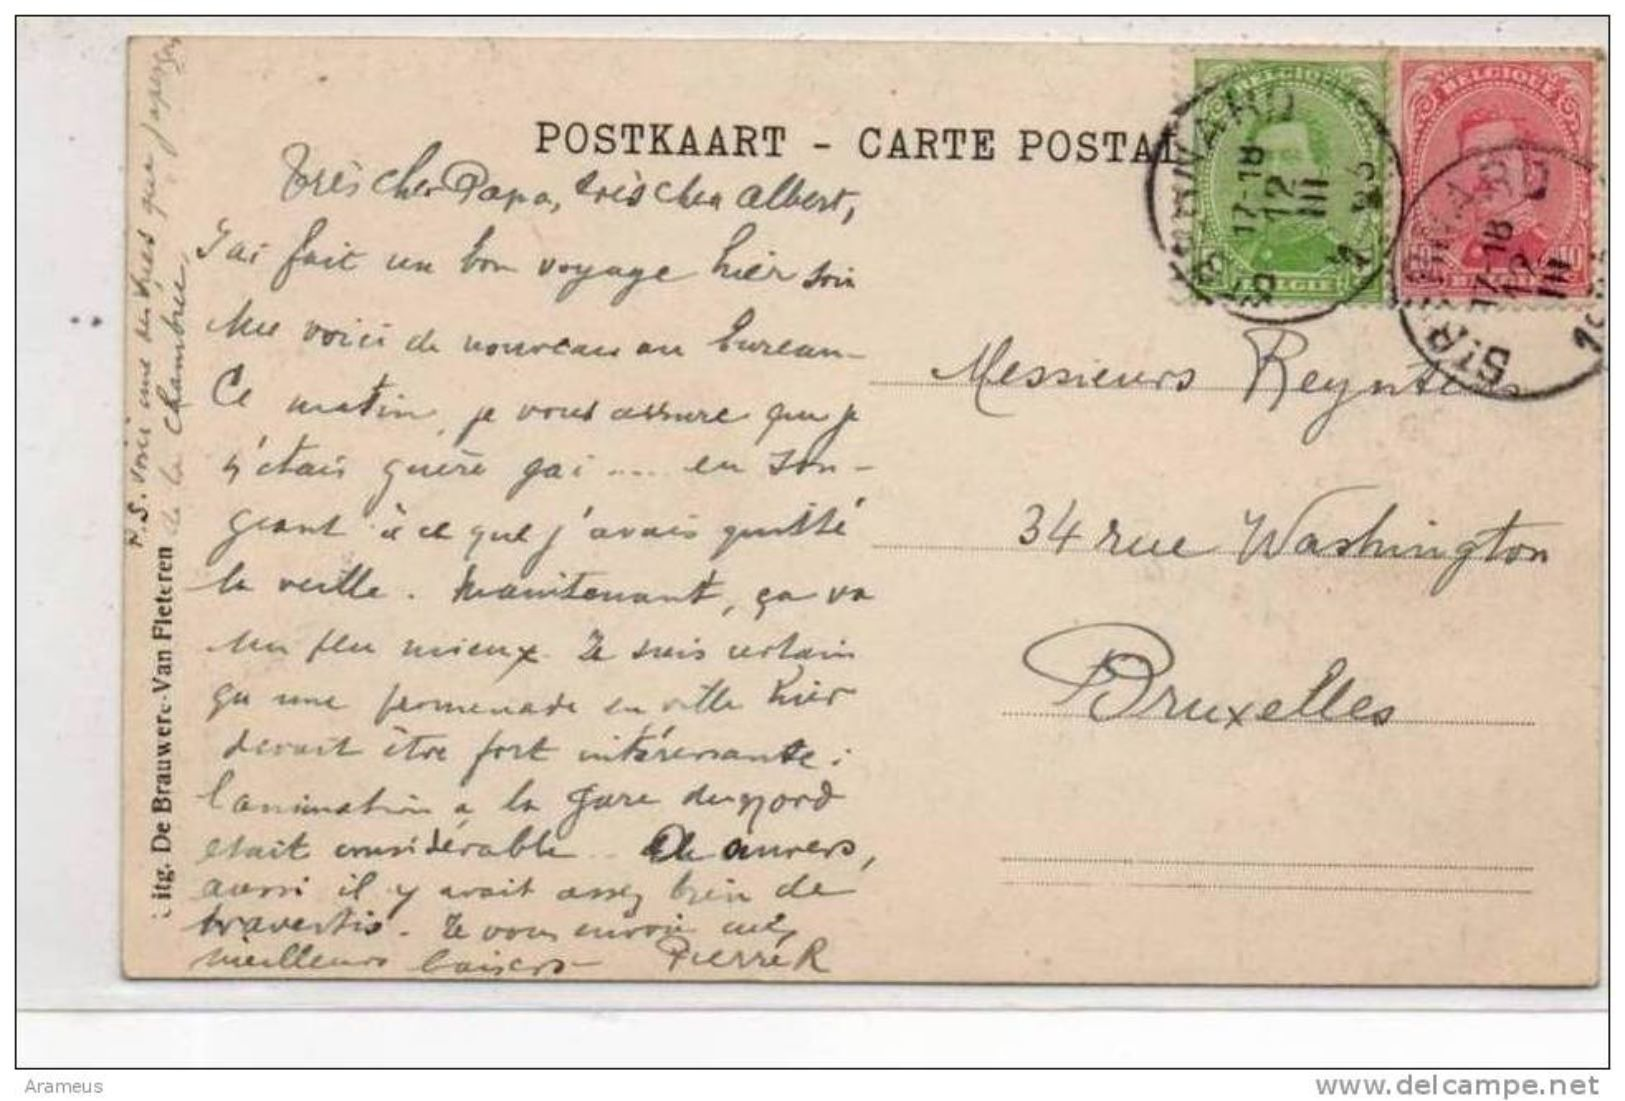 POSTKAART - CARTE POSTAL
Très cher Papa, très cher Albert,
J'ai fait un bon voyage hier soir
Me voici de nouveau au bureau -
Ce matin, je vous assure que je
n'étais guère gai .... en son-
geant à ce que j'avais quitté
la veille. Maintenant, ça va
un peu mieux. Je suis certain
qu'une promenade en ville hier
devait être fort intéressante :
l'animation à la gare du Nord
était considérable. A Anvers,
aussi il y avait assez bien de
travestis. Je vous envoie mes
meilleurs baisers - Pierre R
P.S. Voici une des vues que j'aperçois
de la chambre.
itg. De Brauwere-Van Fleteren
Messieurs Reynders
34 rue Washington
Bruxelles
BELGIQUE
BELGIE
17-18
12
III
BELGIQUE
10
BELGIE
17-18
12
III
Arameus
www.delcampe.net